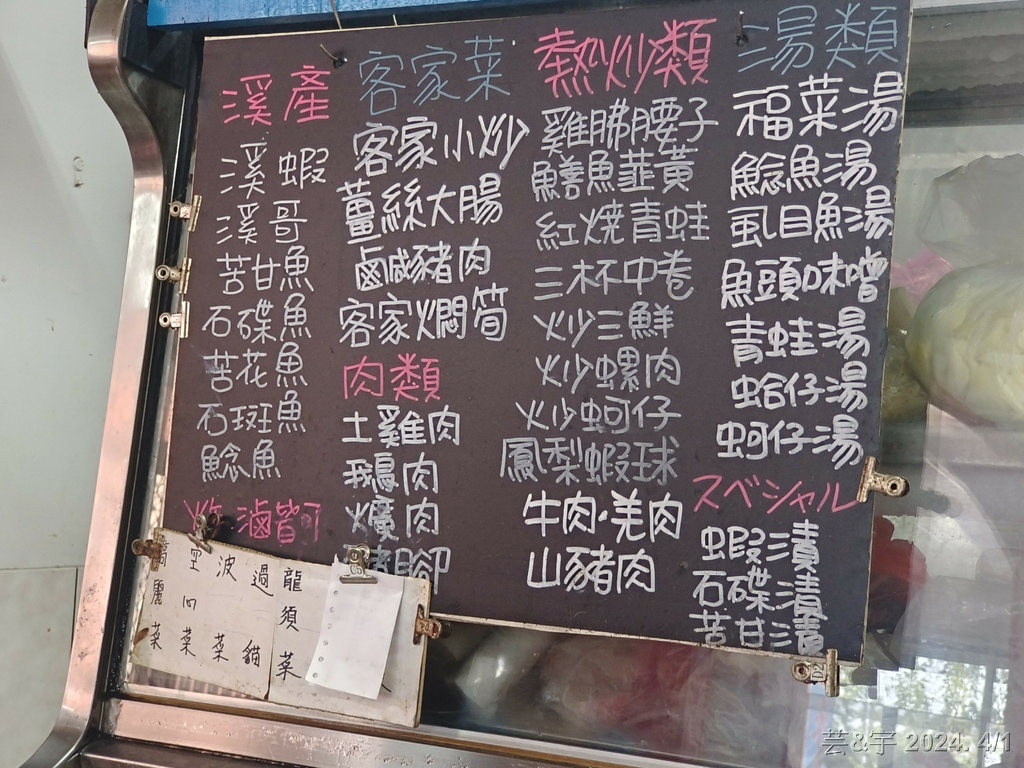 溪產
溪蝦
溪哥
苦甘魚
石碟魚
苦花魚
石斑魚
鯰魚
炸滷皆可
客家菜
客家小炒
薑絲大腸
鹵鹹豬肉
客家燜筍
肉類
土雞肉
鵝肉
爌肉
腳
熱炒類
雞胇腰子
鱔魚韮黃
紅燒青蛙
三杯中卷
炒三鮮
炒螺肉
炒蚵仔
鳳梨蝦球
牛肉·羌肉
山豬肉
湯類
福菜湯
鯰魚湯
虱目魚湯
魚頭味噌
青蛙湯
蛤仔湯
蚵仔湯
スペシャル
蝦漬
石碟漬
苦甘漬
菜
菜
波菜
過貓
龍須菜
芸&宇 2024. 4/1